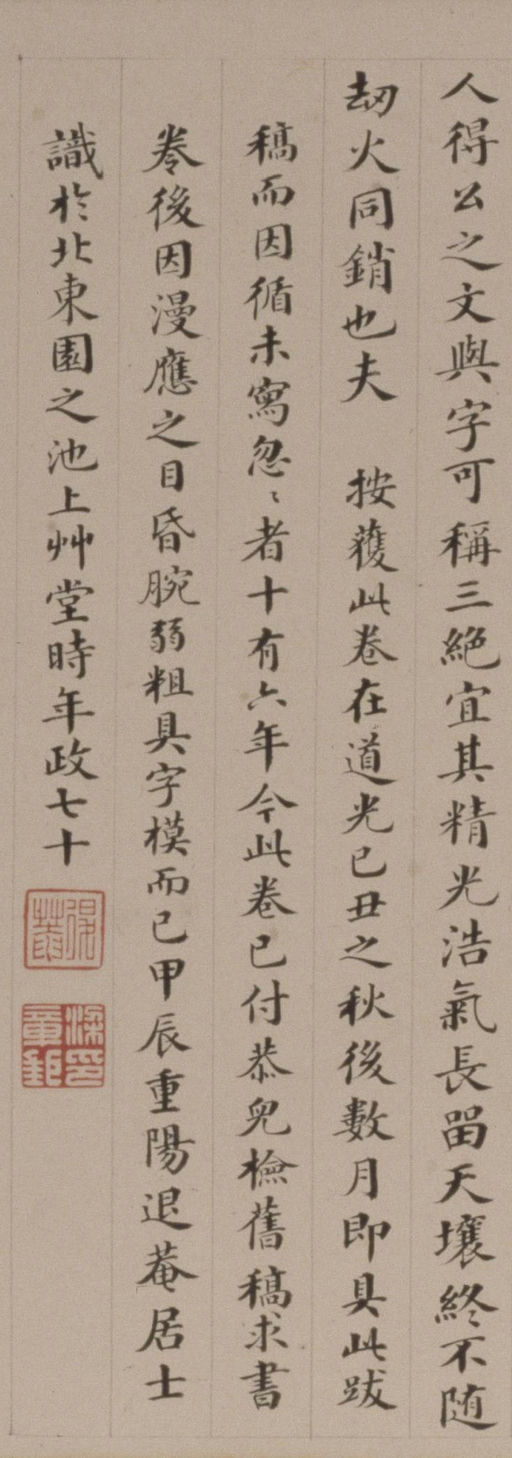 人得公之文與字可稱三絶宜其精光浩氣長留天壤終不随
刼火同銷也夫 按蒦此卷在道光己丑之秋後數月即具此跋
稿而因循未寫忽〻者十有六年今此卷已付恭兒檢舊稿求書
卷後因漫應之目昏腕弱粗具字模而已甲辰重陽退菴居士
識於北東園之池上艸堂時年政七十